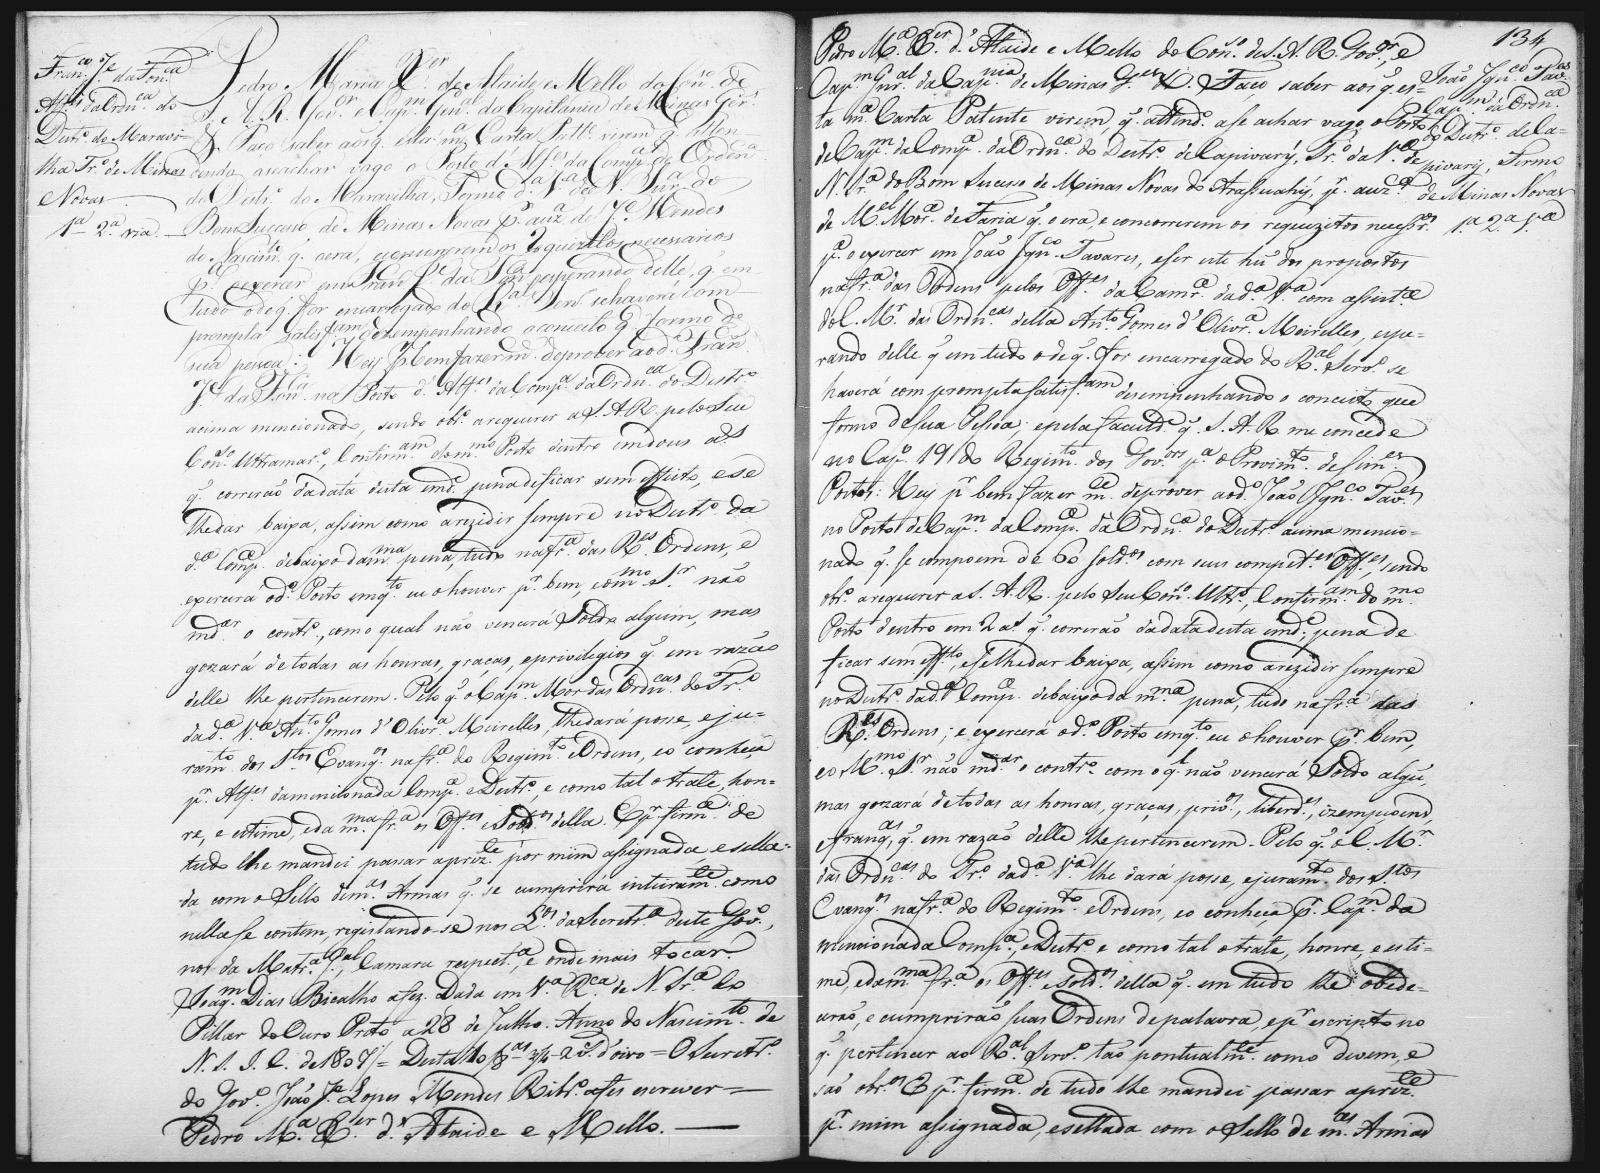 Fran.co J.e da Fon.ca
Alf.es da Ordn.ca do
Destr.o do Maravi-
lha Tr.o de Minas
Novas
1.a 2.a via
Pedro Maria X.er de Ataide e Mello do Con.o de
S. A. R. Gov.or e Cap.m Gen.al da Capitania de Minas Ger.s
&. Faço saber aos q. esta m.a Carta Patt.e virem q. atten
dendo aseachar vago o Posto d' Alf.es da Comp.a da Ordn.ca
do Destr.o do Maravilha, Termo d.a V.a de N. Snr.a do
Bom Sucesso de Minas Novas p.r auz.a de J.e Mendes
do Nascim.to q. oera, econcorrendos requizitos necessarios
p.a oexercer em Fran.co J.e da Fon.ca, esperando delle, q. em
tudo odeq. for encarregado do R.al Serv.o sehaverá com
prompta Satisfam desempenhando oconceito q. formo de
sua pessoa: Hey p.r bem fazer m.ce deprover aod.o Fran.co
J.e da Fon.ca no Posto d' Alf.es da Comp.a da Ordn.ca do Destr.o
acima mencionado, sendo obr.o arequerer a S. A. R. pelo Seu
Con.o Ultramar.o, Confirm.am dom.mo Posto dentro emdous a.s
q. correráo dadata desta emd.e pena deficar sem effeito, ese
lhedar baixa, assim como arezidir sempre no Destr.o da
d.a Comp.a debaixo dam.ma pena, tudo nafr.a das R.es Ordens, e
exercerá od.o Posto emq.to eu ohouver p.r bem, eom.mo S.r não
md.ar o contr.o, como qual não vencerá Soldo algum, mas
gozará de todas as honras, graças, eprivilegios q. em razão
delle lhe pertencerem. Pelo q. oCap.m Mor das Ordn.cas do Tr.o
dad.a V.a An.to Gomes d' Olivr.a Meirelles, lhedará posse, eju=
ram.to dos S.tos Evang.os nafr.a do Regim.to e Ordens, eo conheça
p.r Alf.es damencionada Comp.a eDestr.o, e como tal otrate, hon=
re, e estime, eda m.ma fr.a os Off.es eSold.os della. E p.r firm.e de
tudo lhe mandei passar aprez.te por mim assignada esella=
da com o Sello dem.as Armas q. se cumprirá inteiram.te como
nella se contem, registando-se nos L.os da Secretr.a deste Gov.o,
nos da Matr.a G.al, Camara respect.a, e onde mais tocar.
Joaq.m Dias Bicalho afez. Dada em V.a R.ca de N. Sr.a do
Pillar do Ouro Preto a 28 de Julho. Anno do Nascim.to de
N. S. J. C. de 1807/= Desta 10/8.as 3/4 2 v.s d'oiro = O Secretr.o
do Gov.o João J.e Lopes Mendes Ribr.o afes escrever =
Pedro M.a X.er d' Ataide e Mello. —
134
Pedro M.a X.er d' Ataide e Mello do Con.o de S. A. R. Gov.or, e
Cap.m Gnr.al da Cap.nia de Minas G.es &. Faço saber aos q. es=
ta m.a Carta Patente virem, q. attend.o ase achar vago o Posto
de Cap.m da Comp.a da Ordn.ca do Destr.o de Capivary, Tr.o da V.a de
N. Sr.a do Bom Sucesso de Minas Novas do Arassuahy, p.r auz.a
de M.el Mor.a de Faria q. o era, e concorrerem os requizitos necessr.os
p.a o exercer em João Jgn.co Tavares, eser este hú dos propostos
nafr.a das Ordens pelos Off.es da Camr.a dad.a V.a com assist.a
do C. M.r das Ordn.cas della An.to Gomes d' Olivr.a Meirelles, espe=
rando delle q. em tudo odeq. for encarregado do R.al Serv.o se
haverá com prompta satisf.am desempenhando o conceito que
formo desua Pessoa: epela faculd.e q. S. A. R. me concede
no Cap.o 19 do Regim.to dos Gov.ors p.a o Provim.to desim.es
Postos: Hey p.r bem fazer m.ce deprover aod.o João Jgn.co Tav.es
no Posto de Cap.m da Comp.a da Ordn.ca do Destr.o acima mencio=
nado q. se compoem de 60 Sold.os com seus compet.es Off.es, sendo
obr.o arequerer a S. A. R. pelo seu Con.o Ultr.o, Confirm.am do m.mo
Posto dentro em 2 a.s q. correráo dadata desta emd.e, pena de
ficar sem eff.to, eselhedar baixa, assim como arezidir sempre
no Destr.o dad.a Comp.a debaixo da m.ma pena, tudo nafr.a das
R.es Ordens; e exercerá od.o Posto emq.to eu ohouver p.r bem,
eo M.mo S.r não md.ar o contr.o com o q.l não vencerá Soldo algú,
mas gozará de todas as honras, graças, priv.os, liberd.es, izempsoens,
efranq.as, q. em razão delle lhe pertencerem. Pelo q. o C. M.r
das Ordn.cas do Tr.o dad.a V.a lhe dará posse, ejuram.to dos S.tos
Evang.os nafr.a do Regim.to eOrdens, eo conheça p.r Cap.m da
mencionada Comp.a, eDestr.o e como tal otrate, honre, eesti=
me, edam.ma fr.a os Off.es eSold.os della q. em tudo lhe obede=
ceráo, e cumpriráo suas Ordens depalavra, ep.r escripto no
q. pertencer ao R.al Serv.o tão pontualm.te como devem, e
são obr.os E p.r firm.e de tudo lhe mandei passar aprez.te
p.r mim assignada, esellada com o Sello de m.as Armas
João Jgn.co Tav.es
Cap.m da Ordn.ca
do Destr.o de Ca-
pivary, Termo
de Minas Novas
1.a 2.a v.a